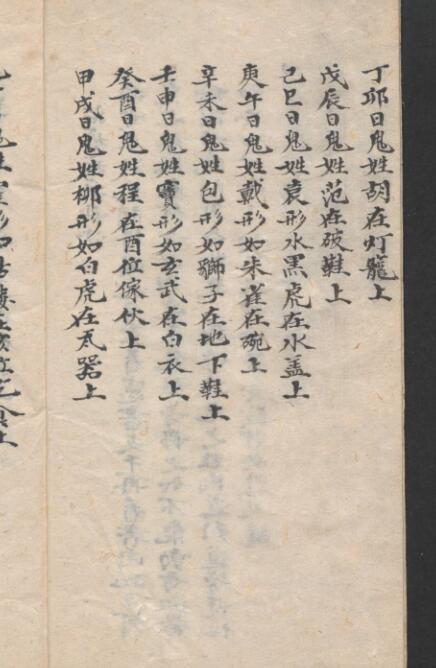 丁卯日鬼姓胡在灯籠上
戊辰日鬼姓范在破鞋上
己巳日鬼姓袁形水黒虎在水盖上
庚午日鬼姓戴形如朱雀在碗上
辛未日鬼姓包形如獅子在地下鞋上
壬申日鬼姓竇形如玄武在白衣上
癸酉日鬼姓程在酉位傢伙上
甲戌日鬼姓柳形如白虎在瓦器上